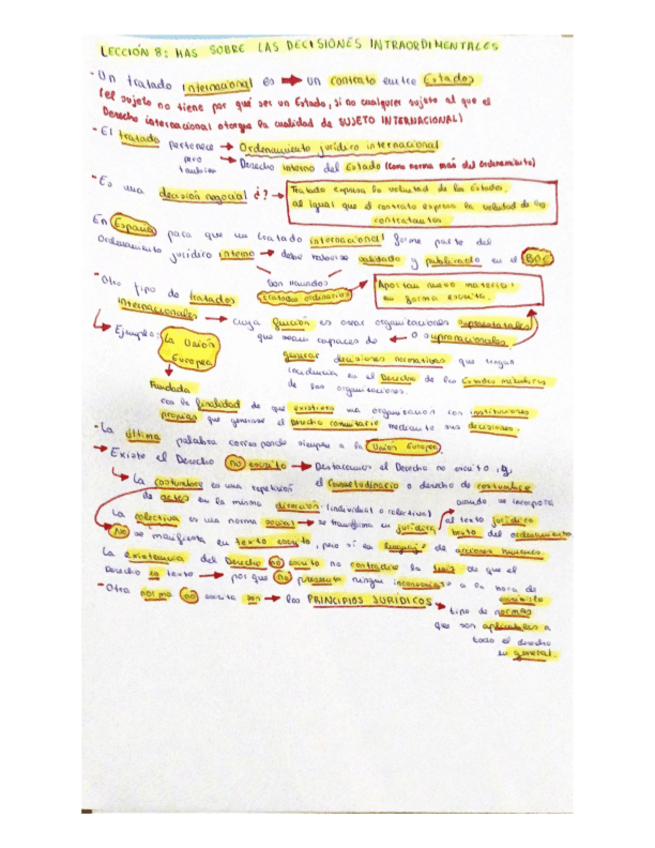 LECCIÓN 8: MAS SOBRE LAS DECISIONES INTRAORDIMENTALES
- Un tratado internacional es → un contrato entre Estados
(el sujeto no tiene por qué ser un Estado, si no cualquier sujeto al que el
Derecho internacional otorga la cualidad de SUJETO INTERNACIONAL)
- El tratado pertenece → Ordenamiento jurídico internacional
pero también → Derecho interno del Estado (como norma más del ordenamiento)
- Es una decisión negocial ¿? → Tratado expresa la voluntad de los Estados,
al igual que el contrato expresa la voluntad de los
contratantes
En España para que un tratado internacional forme parte del
Ordenamiento jurídico interno → debe haberse validado y publicado en el BOE
son llamados
tratados ordinarios
Aportan nuevo material
en forma escrita.
- Otro tipo de tratados
internacionales → cuya función es crear organizaciones supraestatales
o supranacionales
que sean capaces de
generar decisiones normativas que tengan
incidencia en el Derecho de los Estados miembros
de las organizaciones.
Ejemplo: La Unión
Europea
Fundada
con la finalidad de que existiera una organización con instituciones
propias que generase el Derecho comunitario mediante sus decisiones.
- La última palabra corresponde siempre a la Unión Europea.
→ Existe el Derecho no escrito → Destacamos el Derecho no escrito, ej.
el Consuetudinario o derecho de costumbre
La costumbre es una repetición
de actos en la misma dirección (individual o colectiva)
La colectiva es una norma social → se transforma en jurídica
cuando se incorpora
al texto jurídico
bruto del ordenamiento
No se manifiesta en texto escrito, pero sí en de acciones humanas.
La existencia del Derecho no escrito no contradice la tesis de que el
Derecho es texto → porque no presenta ningún inconveniente a la hora de
escribirlo
- Otra norma no escrita son → los PRINCIPIOS JURÍDICOS
tipo de normas
que son aplicables a
todo el derecho
en general.